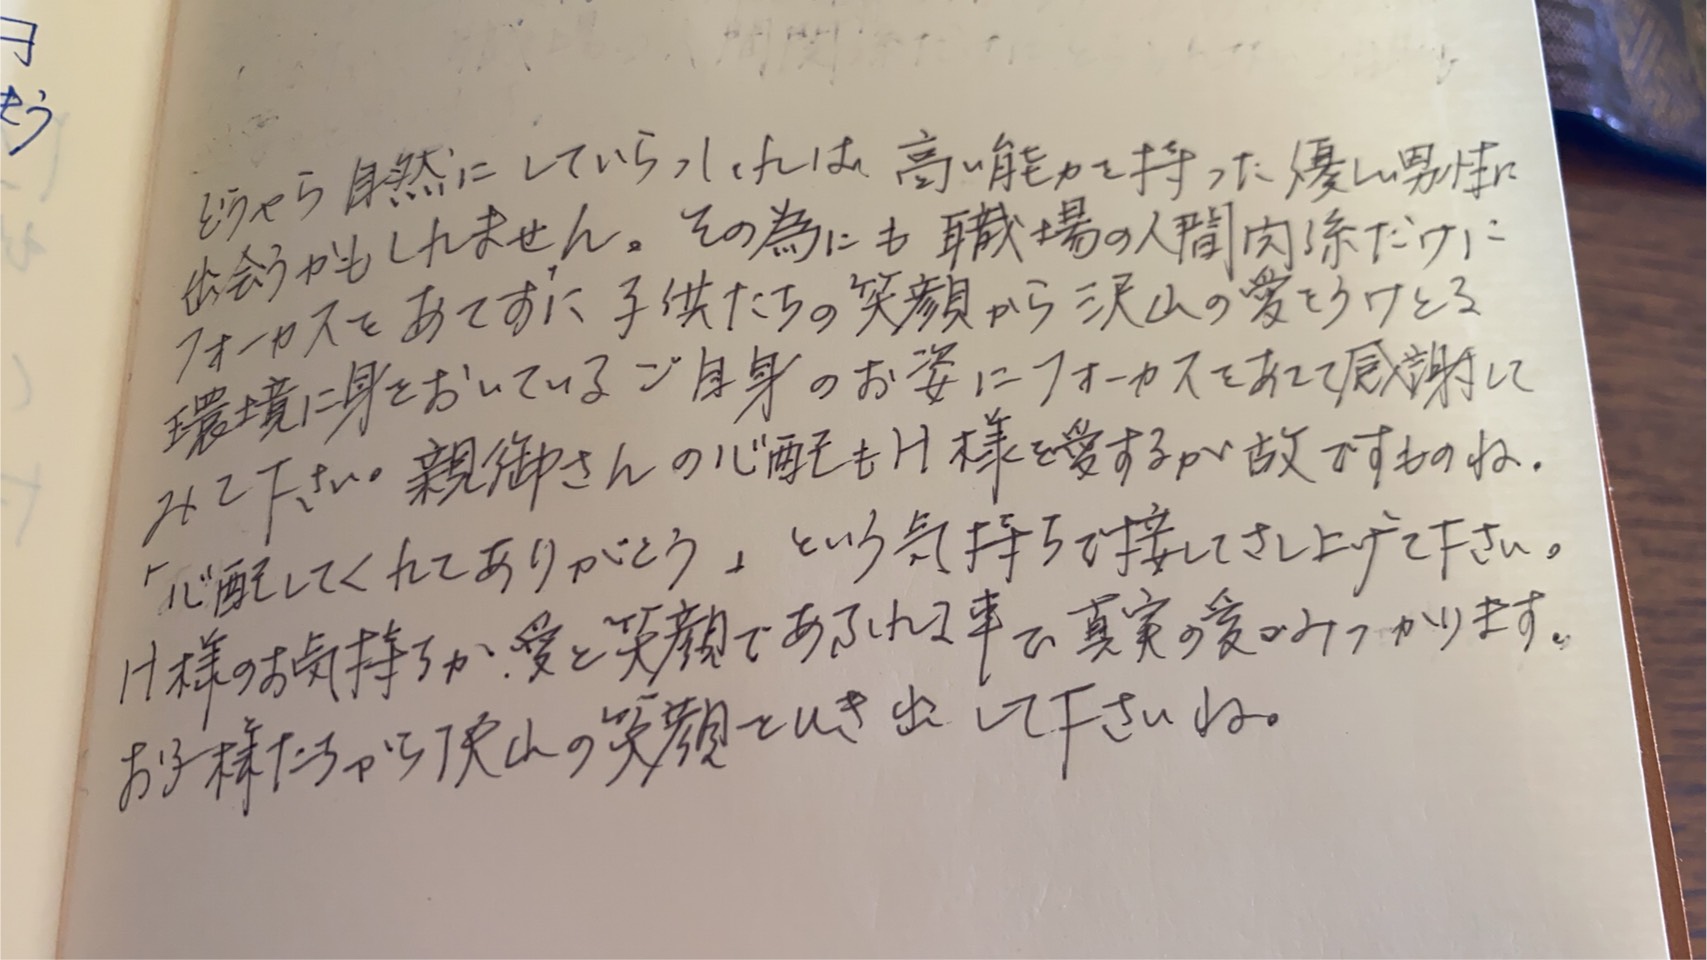 どうやら自然にしていらっしれば、高い能力を持った優しい男性に
出会うかもしれません。その為にも職場の人間関係だけに
フォーカスをあてずに子供たちの笑顔から沢山の愛をうけとる
環境に身をおいているご自身のお姿にフォーカスをあてて感謝して
みて下さい。親御さんの心配もH様を愛するが故ですものね。
「心配してくれてありがとう」という気持ちで接してさし上げて下さい。
H様のお気持ちが、愛と笑顔であふれる事で真実の愛がみつかります。
お子様たちから沢山の笑顔をひき出して下さいね。